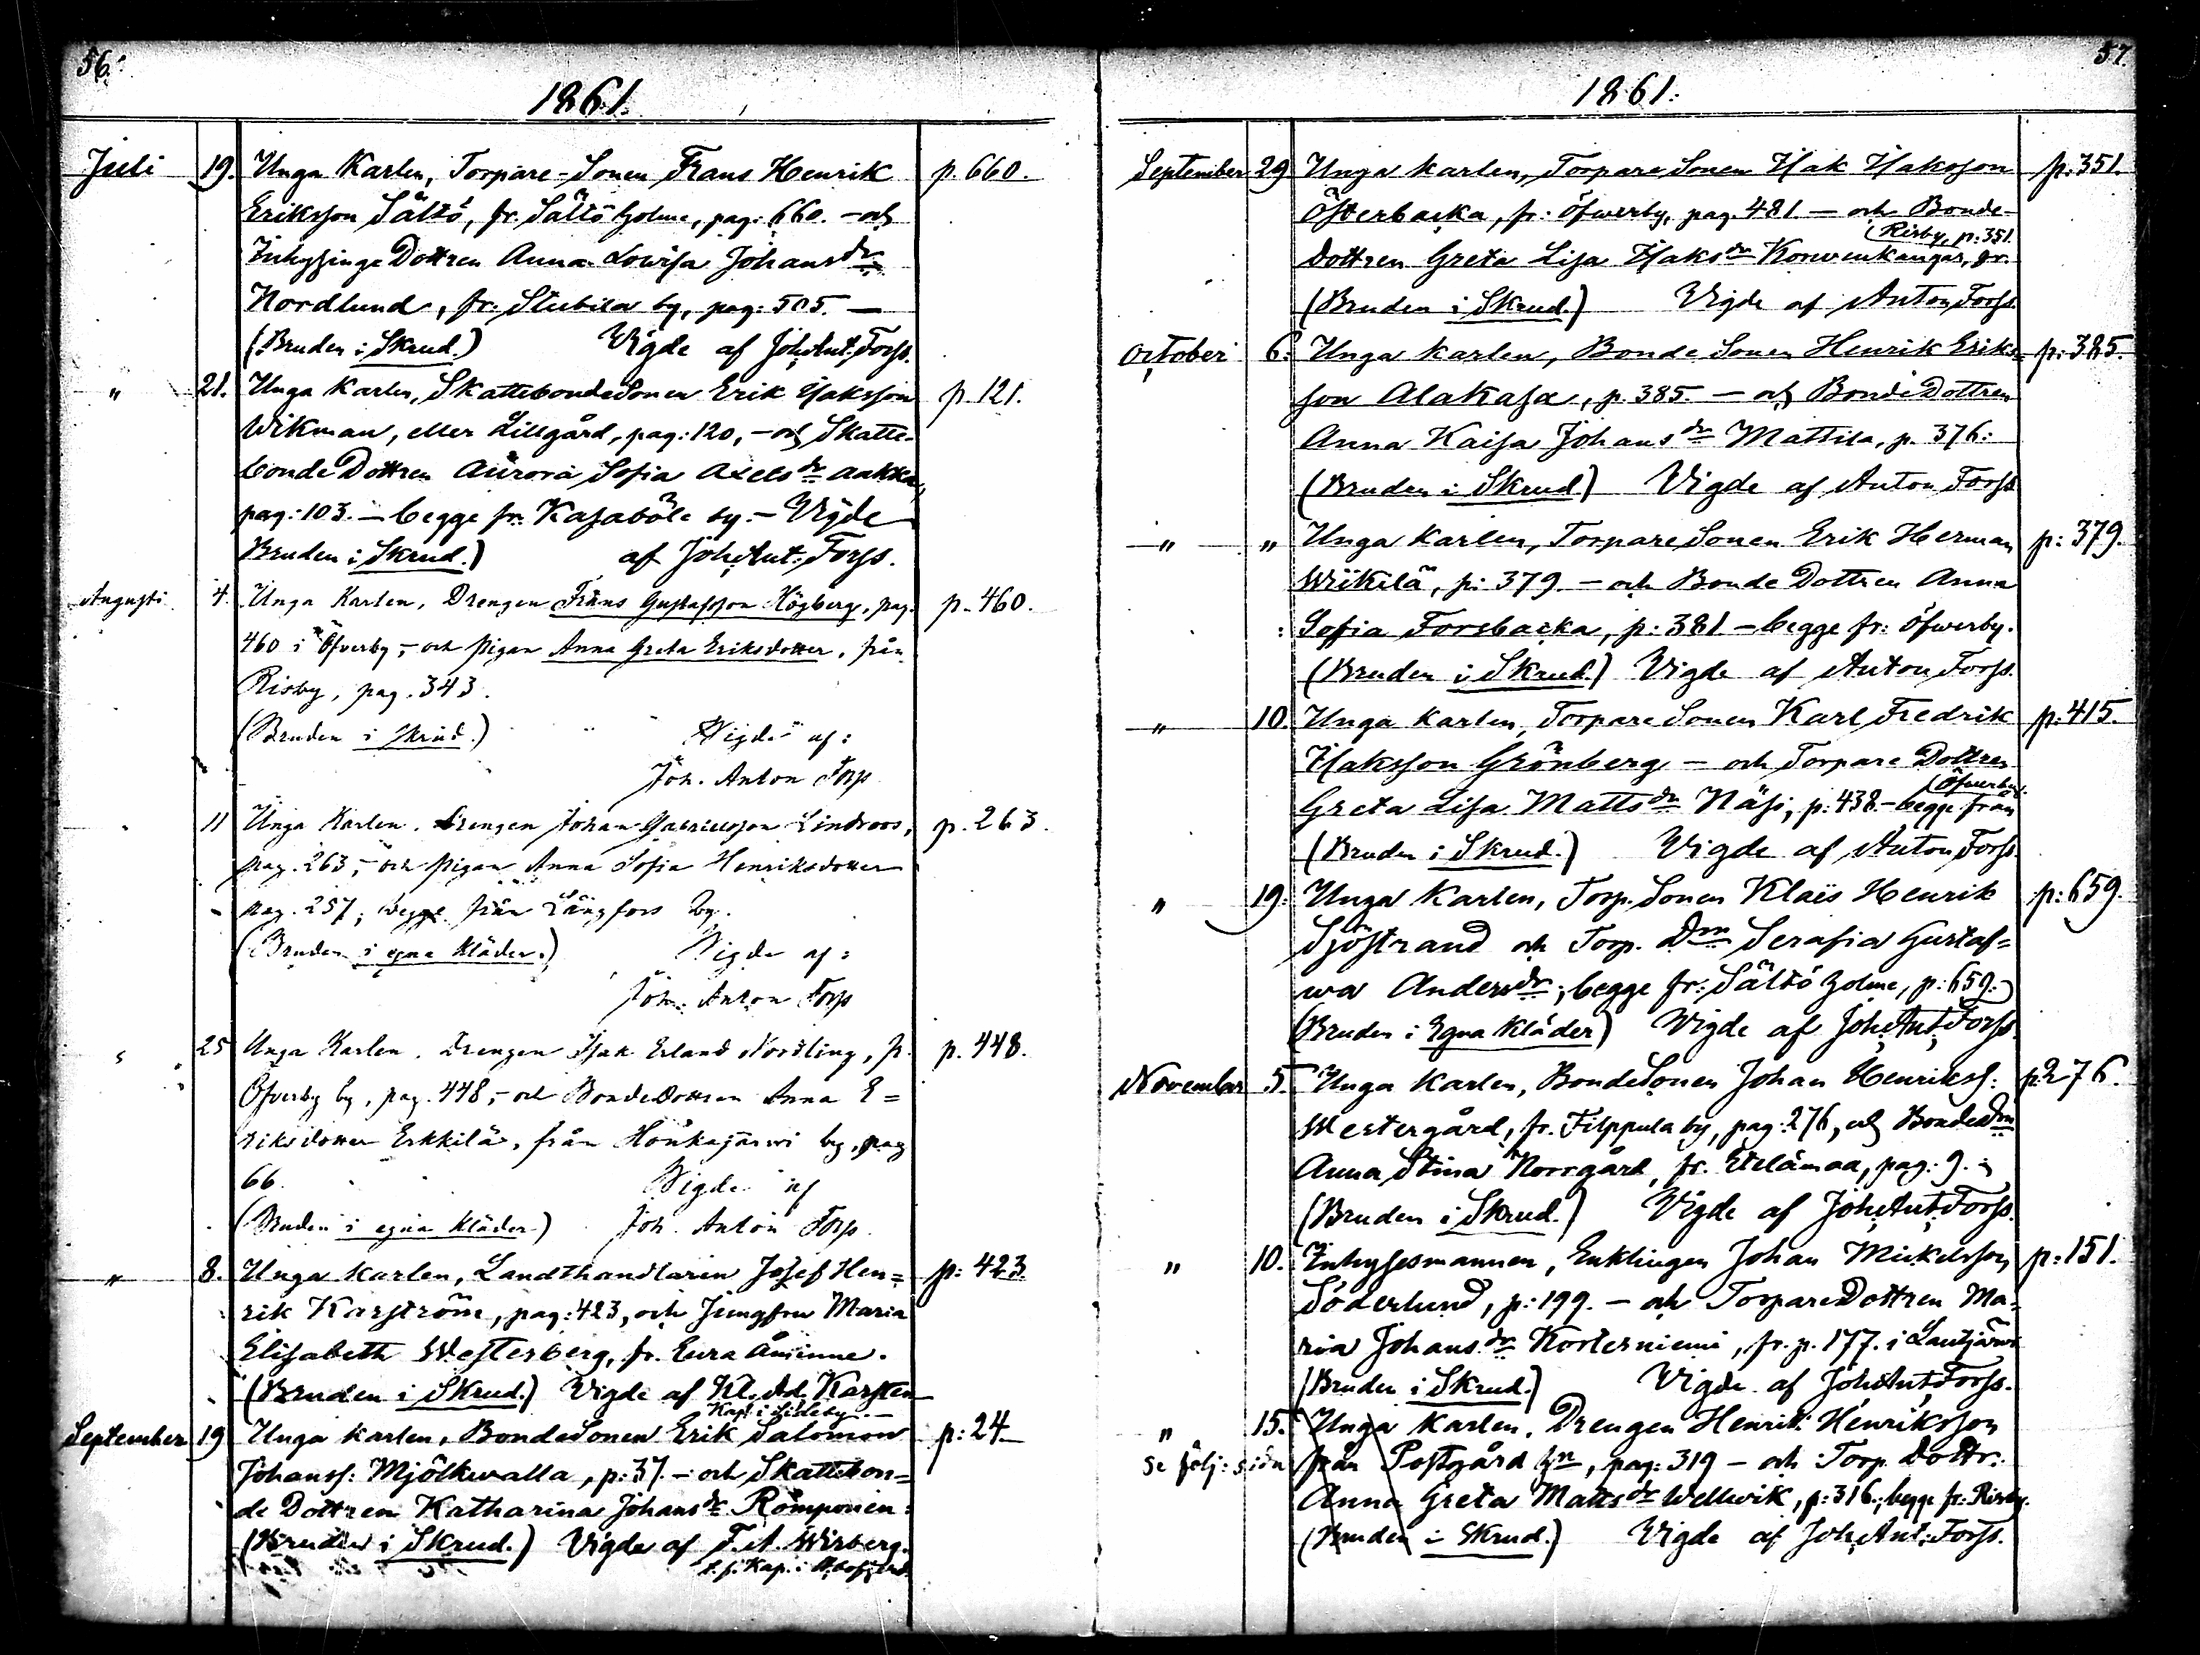 56.
1861.
Juli 19. Unga Karlen, Torpare-Sonen Frans Henrik p. 660.
Eriksson Sältö, fr. Sältö holme, pag: 660. – och
Inhysinge Dottren Anna Lowisa Johansdr
Nordlund, fr. Stubila by, pag: 505. –
(Bruden i Skrud.) Vigde af Joh. Ant. Forss.
" 21. Unga Karlen, SkattebondeSonen Erik Isaksson p. 121.
Wikman, eller Lillgård, pag: 120, – och Skatte-
bondeDottren Aurora Sofia Axelsdr Aakka,
pag: 103. – begge fr. Kasaböle by. – Vigde
Bruden i Skrud.) af Joh. Ant. Forss.
Augusti 4. Unga Karlen, Drengen Frans Gustafsson Högberg, pag. p. 460.
460 i Öfverby, – och Pigan Anna Greta Eriksdotter, från
Risby, pag. 343.
(Bruden i skrud.) Vigde af:
Joh. Anton Forss
11 Unga Karlen, Drengen Johan Gabrielsson Lindroos, p. 263.
pag. 263, – och Pigan Anna Sofia Henriksdotter
pag. 257, begge från Långfors by.
(Bruden i egna kläder.) Vigde af:
Joh. Anton Forss
25 Unga Karlen, Drengen Isak Erland Nordling, fr. p. 448.
Öfverby by, pag. 448, – och BondeDottren Anna E=
riksdotter Erkkilä, från Honkajärwi by, pag
66. Vigde af
(Bruden i egna kläder.) Joh. Anton Forss.
" 8. Unga Karlen, Landthandlaren Josef Hen= p: 423.
rik Karström, pag: 423, och Jungfru Maria
Elisabeth Westerberg, fr. Eura Åminne.
(Bruden i Skrud.) Vigde af Kl. Ad. Karsten
Kapl. i Sideby. –
September 19 Unga Karlen, BondeSonen Erik Salomon p: 24.
Johanss: Mjölkwalla, p: 37. – och Skattebon=
de Dottren Katharina Johansdr Romponen.
(Bruden i Skrud.) Vigde af F. A. Wirberg.
57
1861.
September 29 Unga Karlen, TorpareSonen Isak Isaksson p. 351.
Österbacka, fr: Öfwerby, pag. 481 – och Bonde-
(Risby, p: 351.
dottren Greta Lisa Isaksdr Korwenkangas, fr.
(Bruden i Skrud.) Vigde af Anton Forss.
October 6. Unga Karlen, BondeSonen Henrik Eriks= p: 385.
son Alakasa, p. 385. – och BondeDottren
Anna Kaisa Johansdr Mattila, p. 376.
(Bruden i Skrud.) Vigde af Anton Forss
" " Unga Karlen, TorpareSonen Erik Herman p: 379.
Wiikilä, p: 379. – och BondeDottren Anna
Sofia Forsbacka, p: 381 – begge fr: Öfwerby.
(Bruden i Skrud.) Vigde af Anton Forss.
" 10. Unga Karlen, TorpareSonen Karl Fredrik p: 415.
Isaksson Grönberg – och Torpare Dottren
(Öfwerby.
Greta Lisa Mattsdr Näsi, p: 438. – begge från
(Bruden i Skrud.) Vigde af Anton Forss.
" 19. Unga Karlen, Torp. Sonen Klaës Henrik p: 659.
Sjöstrand och Torp. Drn Serafia Gustaf=
wa Andersdr; begge fr: Sältö holme, p: 659.
(Bruden i Egna Kläder) Vigde af Joh. Ant. Forss.
November 5. Unga Karlen, BondeSonen Johan Henrikss: p. 276.
Westergård, fr. Filppula by, pag: 276, och BondeDrn
Anna Stina Norrgård, fr. Etelämaa, pag: 9.
(Bruden i Skrud.) Vigde af Joh. Ant. Forss.
" 10. Inhysesmannen, Enklingen Johan Mickelsson p: 151.
Söderlund, p: 199. – och TorpareDottren Ma-
ria Johansdr Korteniemi, fr. p. 177. i Lautjärwi
(Bruden i Skrud.) Vigde af Joh. Ant. Forss.
" 15. Unga Karlen, Drengen Henrik Henriksson
se följ: sidn från Postgård hn, pag: 319 – och Torp. Dottr.
Anna Greta Mattsdr Wellwik, p: 316; begge fr: Risby.
(Bruden i Skrud.) Vigde af Joh. Ant. Forss.